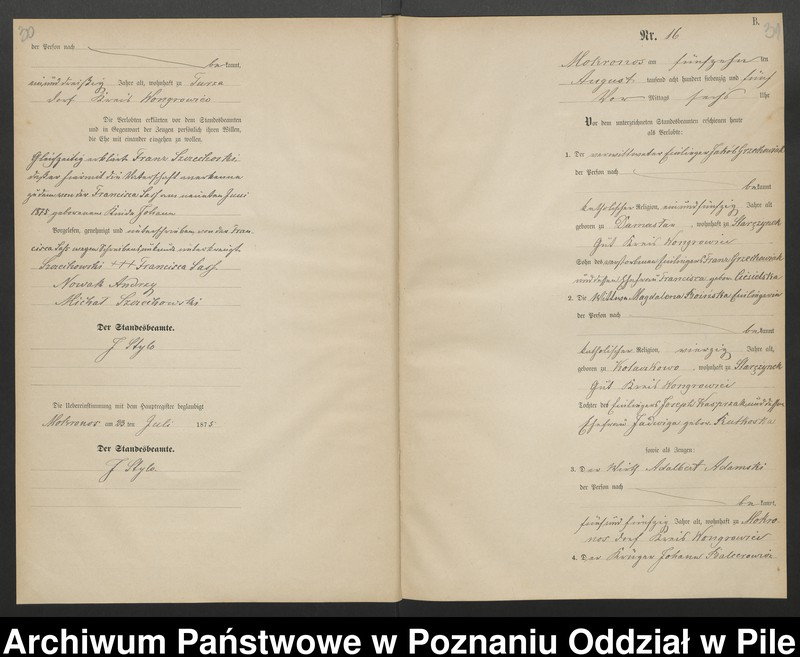 30
der Person nach
be kannt,
einunddreißig Jahre alt, wohnhaft zu Turza
dorf Kreis Wongrowiec
Die Verlobten erklärten vor dem Standesbeamten
und in Gegenwart der Zeugen persönlich ihren Willen,
die Ehe mit einander eingehen zu wollen.
Gleichzeitig erklärt Franz
daß er hiermit die Vaterschaft anerkenne
zu dem von der Francisca am neunten Juni
1875 geborenen Kinde Johann
Vorgelesen, genehmigt und unterschrieben von der Fran-
cisca wegen Schreibensunkunde unterkreuzt.
+++ Francisca
Nowak Andrzy
Michal
Der Standesbeamte.
J Stylo
Die Uebereinstimmung mit dem Hauptregister beglaubigt
Mokronos am 25 ten Juli 1875
Der Standesbeamte.
J Stylo.
B.
31
Nr. 16
Mokronos am fünfzehn ten
August tausend acht hundert siebenzig und fünf
Vor Mittags sechs Uhr
Vor dem unterzeichneten Standesbeamten erschienen heute
als Verlobte:
1. Der verwittweter Einlieger Jakob Grzechowiak
der Person nach
be kannt
katholischer Religion, einundfünfzig Jahre alt
geboren zu , wohnhaft zu Starczynek
Gut Kreis Wongrowiec
Sohn des verstorbenen Einliegers Franz Grzechowiak
und dessen Ehefrau Francisca geborn Ciesielska
2. Die Wittwe Magdalena Einliegerin
der Person nach
be kannt
katholischer Religion, vierzig Jahre alt,
geboren zu Kolaczkowo, wohnhaft zu Starczynek
Gut Kreis Wongrowiec
Tochter des Einliegers Joseph Kasprzak und dessen
Ehefrau Jadwiga gebor. Rutkoska
sowie als Zeugen:
3. Der Wirth Adalbert Adamski
der Person nach
be kannt,
fünf und fünfzig Jahre alt, wohnhaft zu Mokro-
nos dorf Kreis Wongrowiec
4. Der Krüger Johann Balcerowicz
Archiwum Państwowe w Poznaniu Oddział w Pile